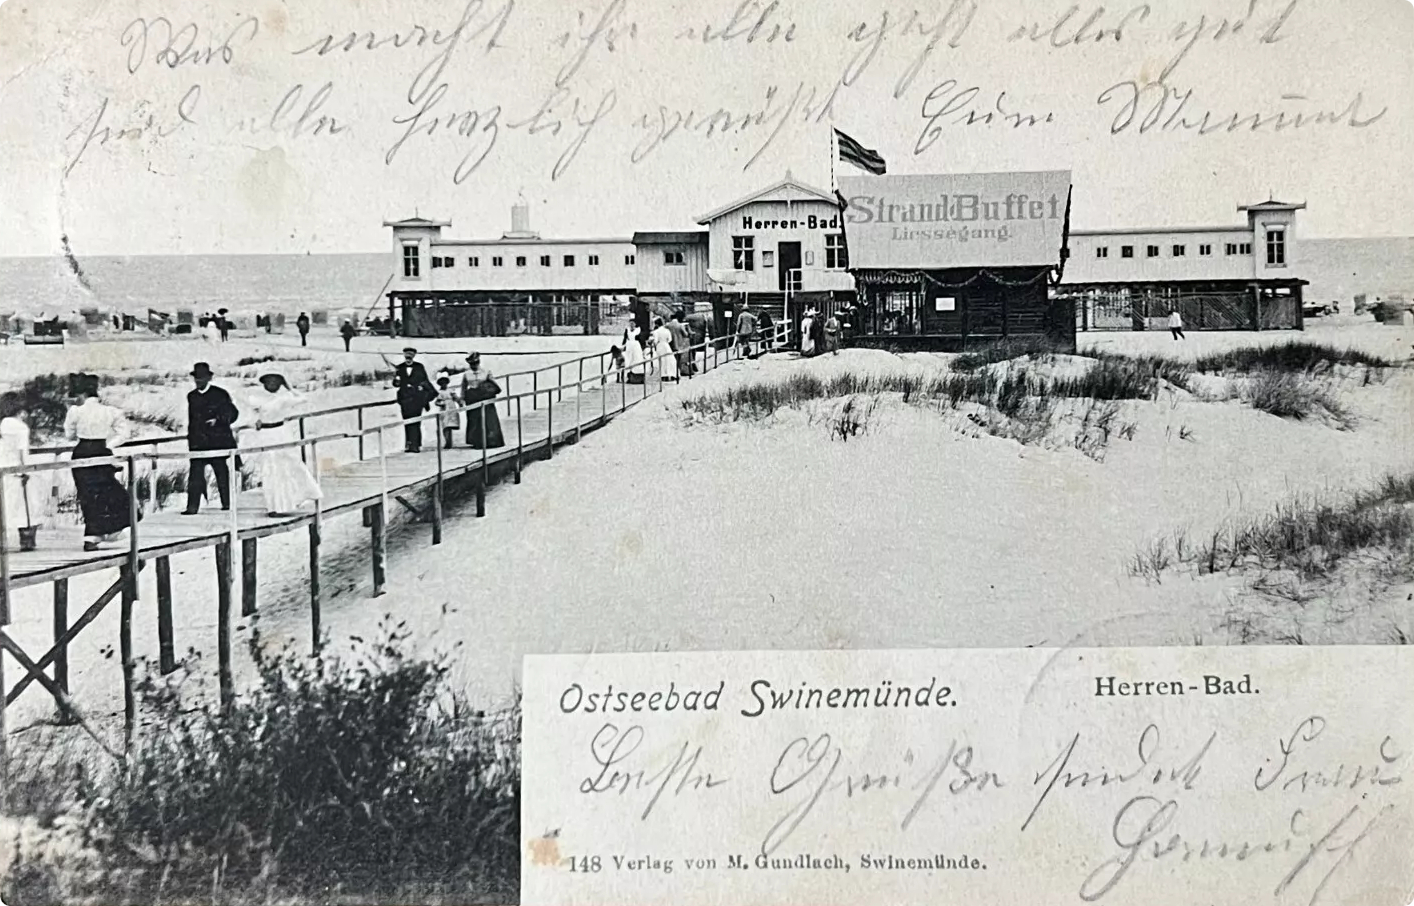 Was macht ihr alle geht alles gut
seid alle herzlich gegrüßt
Herren-Bad.
StrandBuffet
Liessegang.
Ostseebad Swinemünde.
Herren-Bad.
Beste Grüße sendet Frau
148 Verlag von M. Gundlach, Swinemünde.